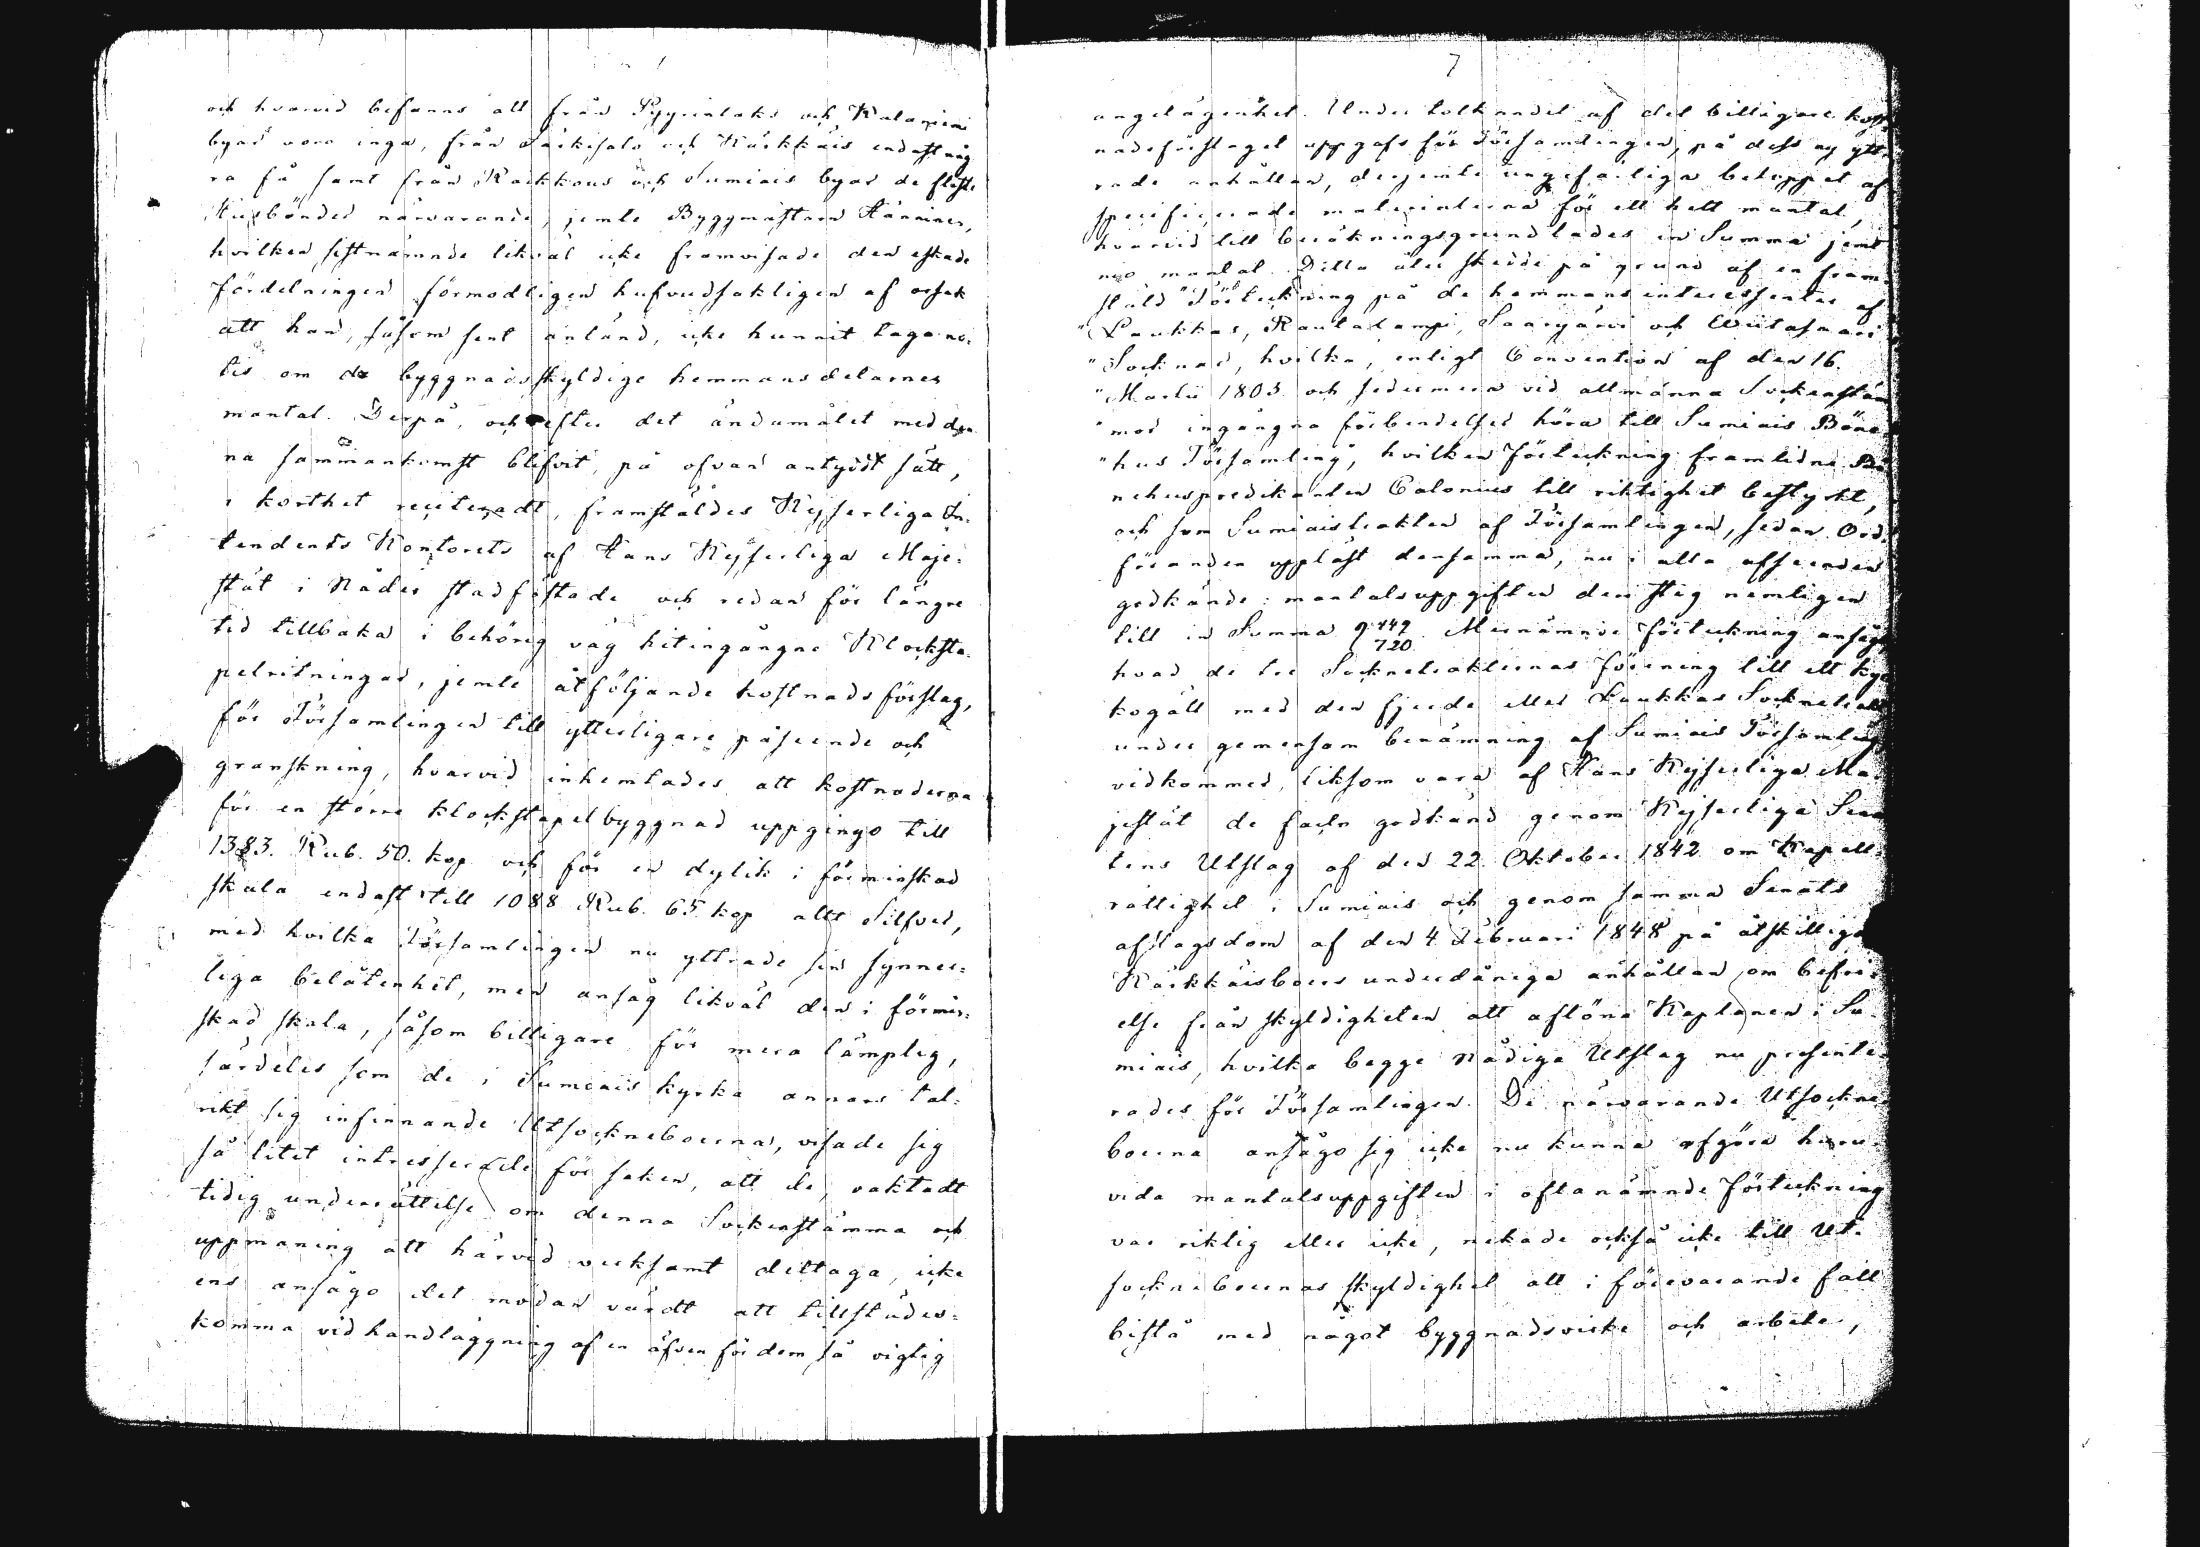 och hvarvid befanns att från Pyyrinlaks och Kalaniemi
byar voro inga, från Särkisalo och Käckkäis endast någ
ra få samt från Raikkous och Sumiais byar de fleste
Husbönder närvarande, jemte Byggmästaren Hänninen,
hvilken sistnämnde likväl icke framvisade den eskade
fördelningen förmodligen hufvudsakligen af orsak
att han, såsom sent anländ, icke hunnit taga no-
tis om de byggnadsskyldige hemmansdelarnes
mantal. Derpå, och efter det ändamålet med den
na sammankomst blifvit, på ofvan antydt sätt,
i korthet reciteradt, framställdes Kejserliga In-
tendents Kontorets af Hans Kejserliga Maje-
stät i Nåder stadfästade och redan för längre
tid tillbaka i behörig väg hitingångne Klocksta-
pelritningar, jemte åtföljande kostnadsförslag,
för Församlingen till ytterligare påseende och
granskning, hvarvid inhemtades att kostnaderna
för en större klockstapelbyggnad uppgingo till
1383. Rub. 50. kop och för en dylik i förminskad
skala endast till 1088 Rub. 65 kop allt Silfver,
med hvilka Församlingen nu yttrade sin synner-
liga belåtenhet, men ansåg likväl den i förmin-
skad skala, såsom billigare för mera lämplig,
särdeles som de i Sumiais kyrka annars tal-
rikt sig infinnande Utsockneboerna, visade sig
så litet intresserade för saken, att de, oaktadt
tidig underrättelse om denna Sockenstämma och
uppmaning att härvid verksamt deltaga, icke
ens ansågo det mödan värdt att tillstädes-
komma vid handläggning af en äfven för dem så vigtig
7
angelägenhet. Under tolkandet af det billigare kost-
nadsförslaget uppgafs för Församlingen, på dess ny ytt-
rade anhållan, derjemte ungefärliga beloppet af
specificerade materialierna för ett helt mantal,
hvarvid till beräkningsgrund lades in Summa jemt
nio mantal. Detta åter skedde på grund af en fram-
stäld "Förteckning på de hemmansinteressenter af
"Laukkas, Rautalampi, Saarijärvi och Wiitasaari
"Socknar, hvilka, enligt Convention af den 16.
"Martii 1803 och sedermera vid allmänna Sockenstäm
"mor ingångna förbindelser höra till Sumiais Böne-
"hus Församling", hvilken Förteckning framlidne Bö
nehuspredikanten Calonius till riktighet bestyrkt,
och som Sumiaistrakten af Församlingen, sedan Ord-
föranden uppläst densamma, nu i alla afseenden
godkände: mantalsuppgiften den steg nemligen
till in Summa 9 149/720. Mernämnde Förteckning ansågs
hvad de tre Socknetrakternas förening till ett kyr
kogäll med den fjerde eller Laukkas Socknetrakt
under gemensam benämning af Sumiais Församling
vidkommer, liksom vara af Hans Kejserliga Ma-
jestät de facto godkänd genom Kejserliga Sena
tens Utslag af den 22 Oktober 1842 om Kapell-
rättighet i Sumiais och genom samma Senats
afslagsdom af den 4 Februari 1848 på åtskillige
Käckkäisboers underdåniga anhållan om befri-
else från skyldigheten att aflöna Kaplanen i Su-
miais, hvilka begge nådiga Utslag nu presente-
rades för Församlingen. De närvarande Utsockne-
boerna ansågo sig icke nu kunna afgöra huru-
vida mantalsuppgiften i oftanämnde förteckning
var riktig eller icke, nekade också icke till Ut-
sockneboernas skyldighet att i förevarande fall
bistå med något byggnadsvirke och arbete,